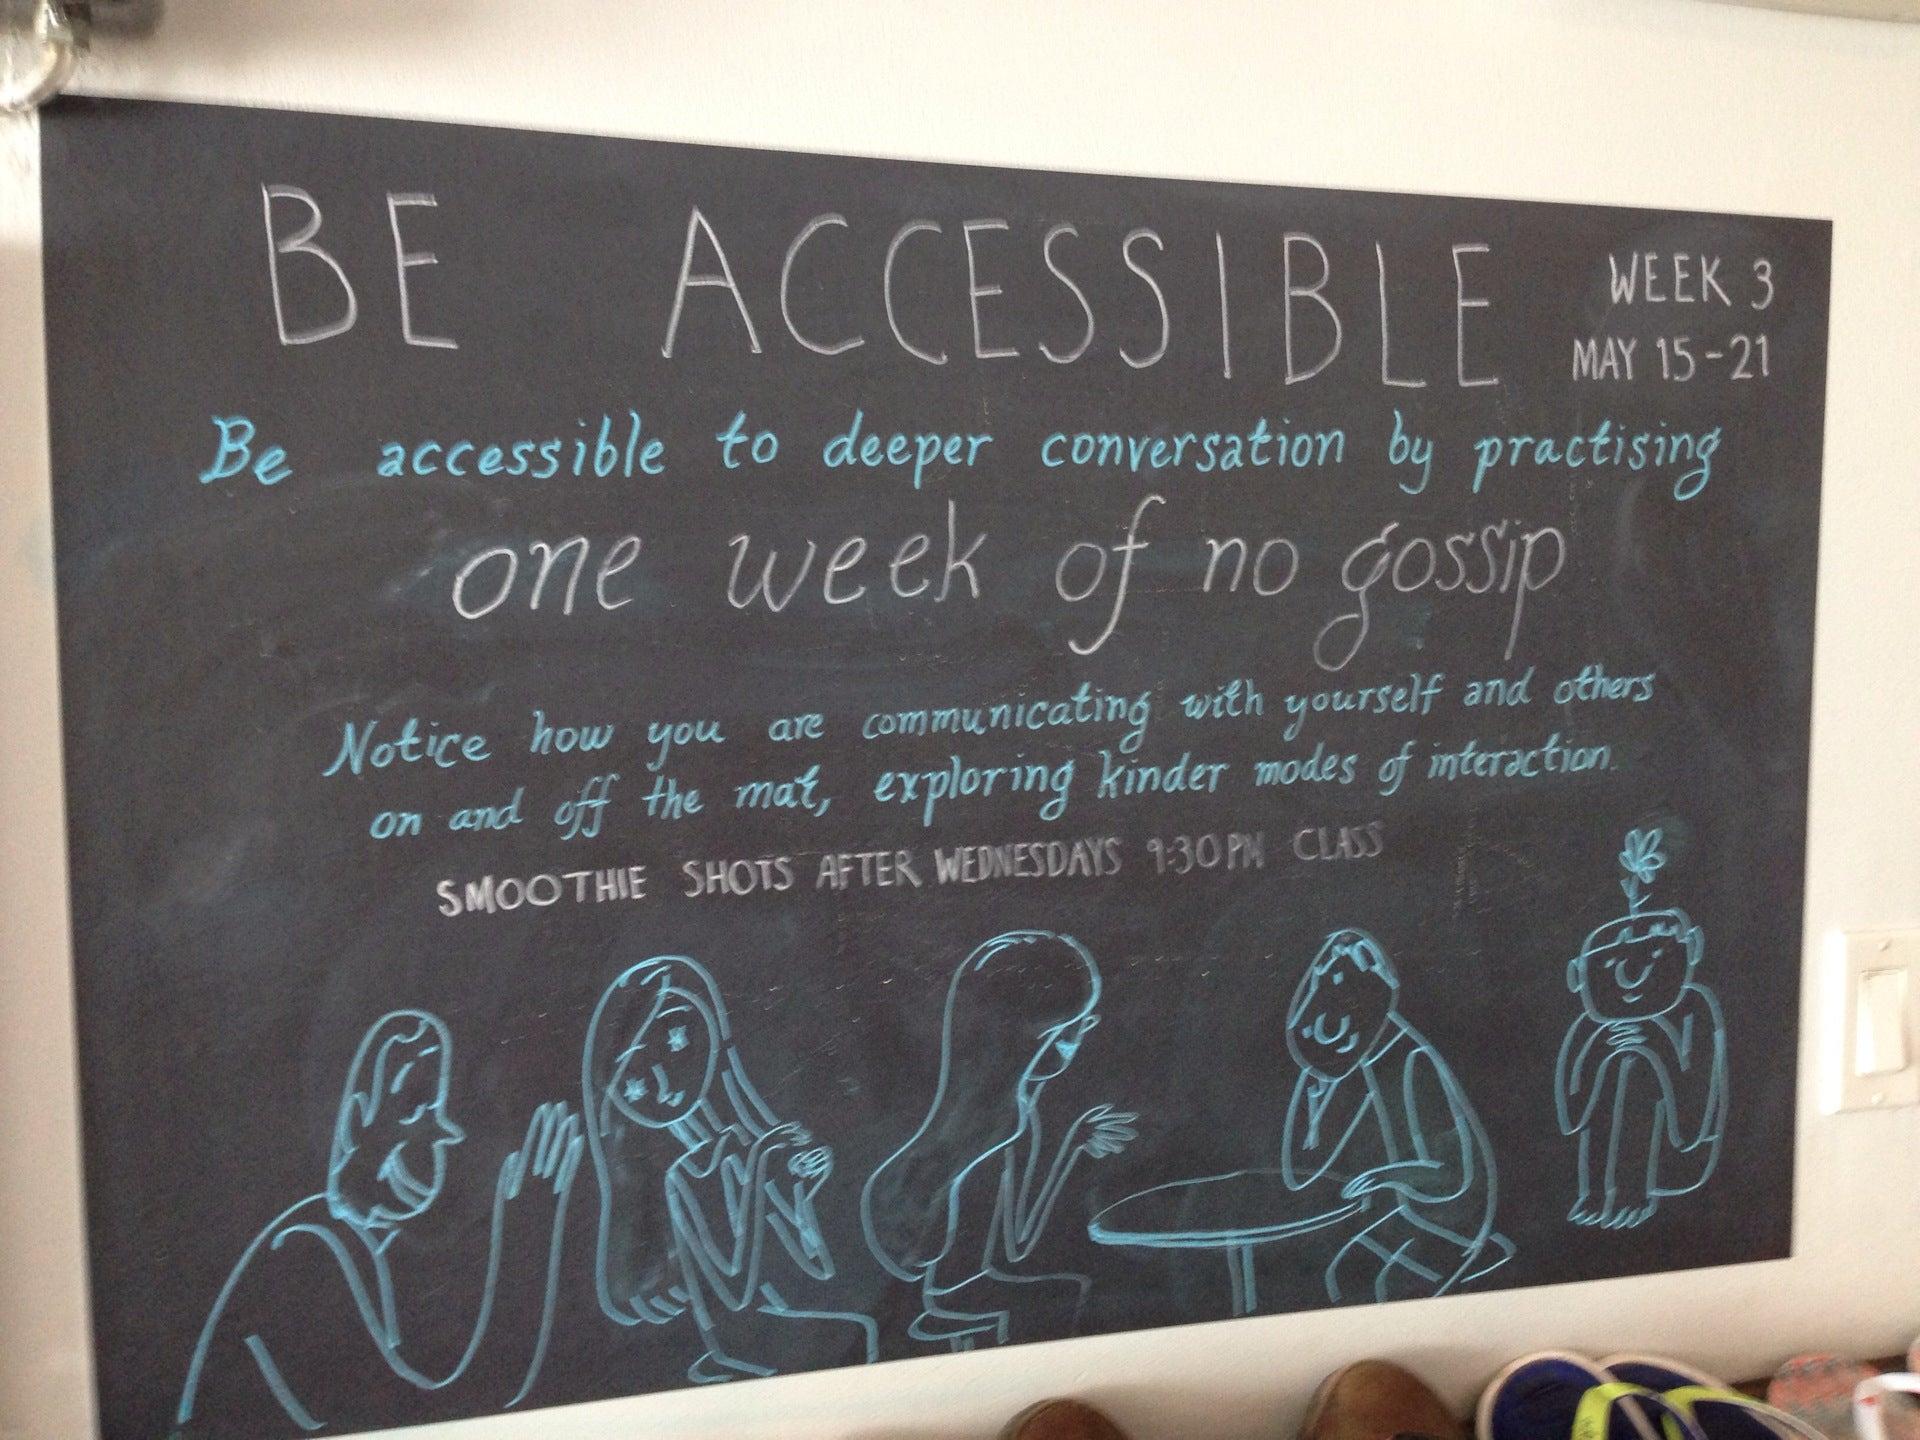 BE ACCESSIBLE
WEEK 3
MAY 15-21
Be accessible to deeper conversation by practising
one week of no gossip
Notice how you are communicating with yourself and others
on and off the mat, exploring kinder modes of interaction.
SMOOTHIE SHOTS AFTER WEDNESDAYS 9:30PM CLASS